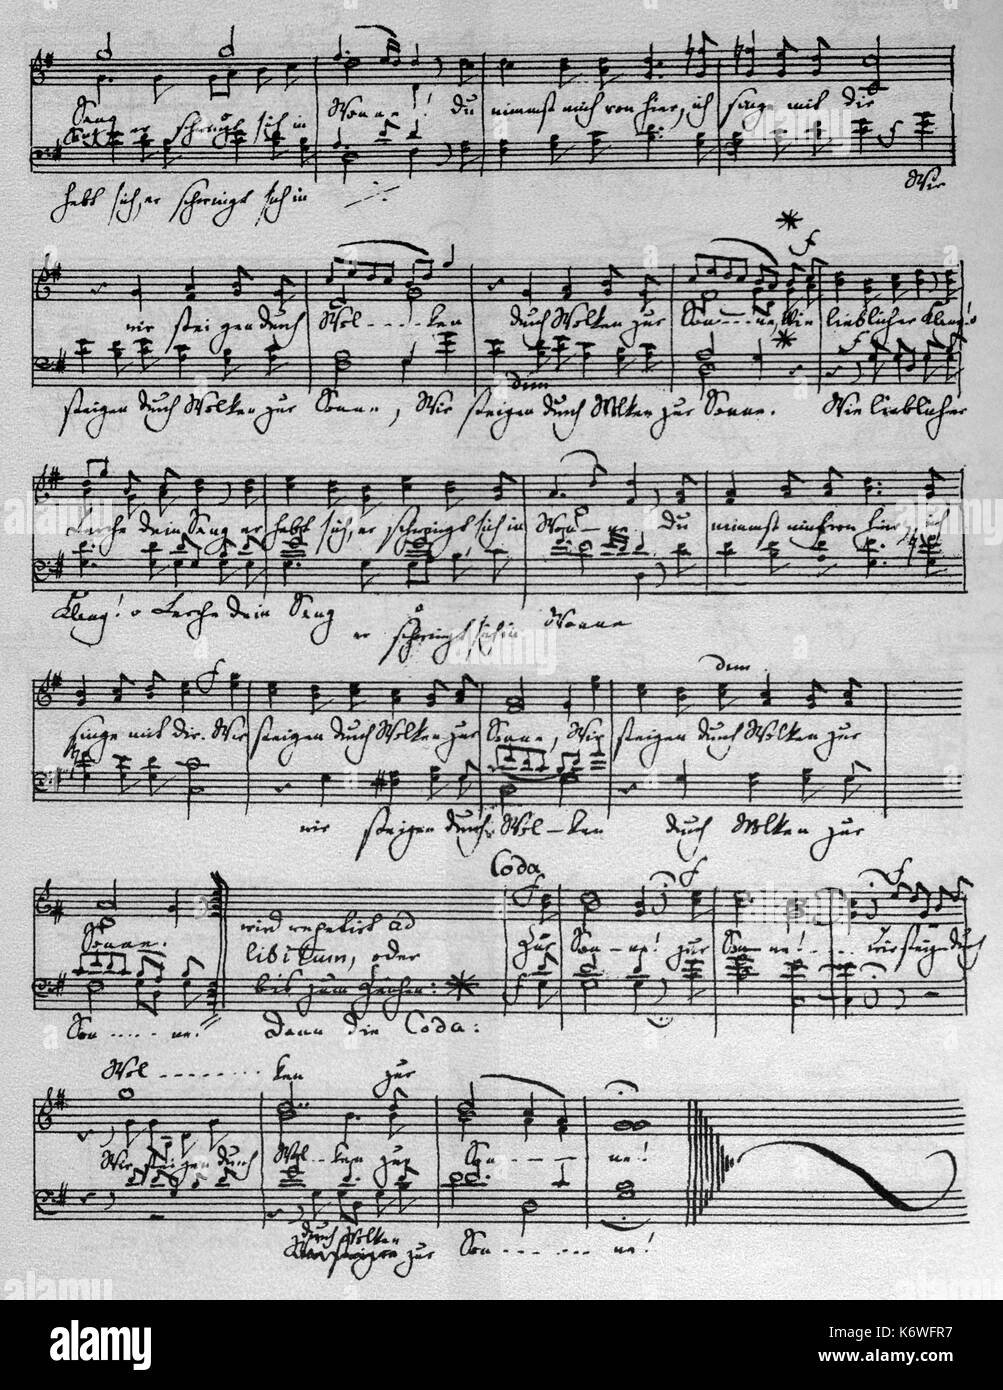 Sang er schwingt sich in Wonne! Du nimmst mich von hier, ich singe mit dir
hebt sich, er schwingt sich in
Wir
f
wir steigen durch Wol - - - - ken durch Wolken zur Son - - - ne Wie lieblicher Klang! o
dem
steigen durch Wolken zur Sonne, Wir steigen durch Wolken zur Sonne. Wie lieblicher
Lerche dein Sang er hebt sich, er schwingt sich in Won - ne. Du nimmst mich von hier, ich
Klang! o Lerche dein Sang er schwingt sich in Wonne
dem
singe mit dir. Wir steigen durch Wolken zur Sonne, Wir steigen durch Wolken zur
wir steigen durch Wol - ken durch Wolken zur
Coda
Sonne. wird repetirt ad zur Son - ne! zur Son - ne! - - - wir steigen durch
libitum, oder
bis zum Zeichen: *
Son - - - - - ne! Dann die Coda:
Wol - - - - - - - - ken zur
Wir steigen durch Wol - - ken zur Son - - - - ne!
durch Wolken
zur Son - - - - - ne!
alamy
Image ID: K6WFR7
www.alamy.com